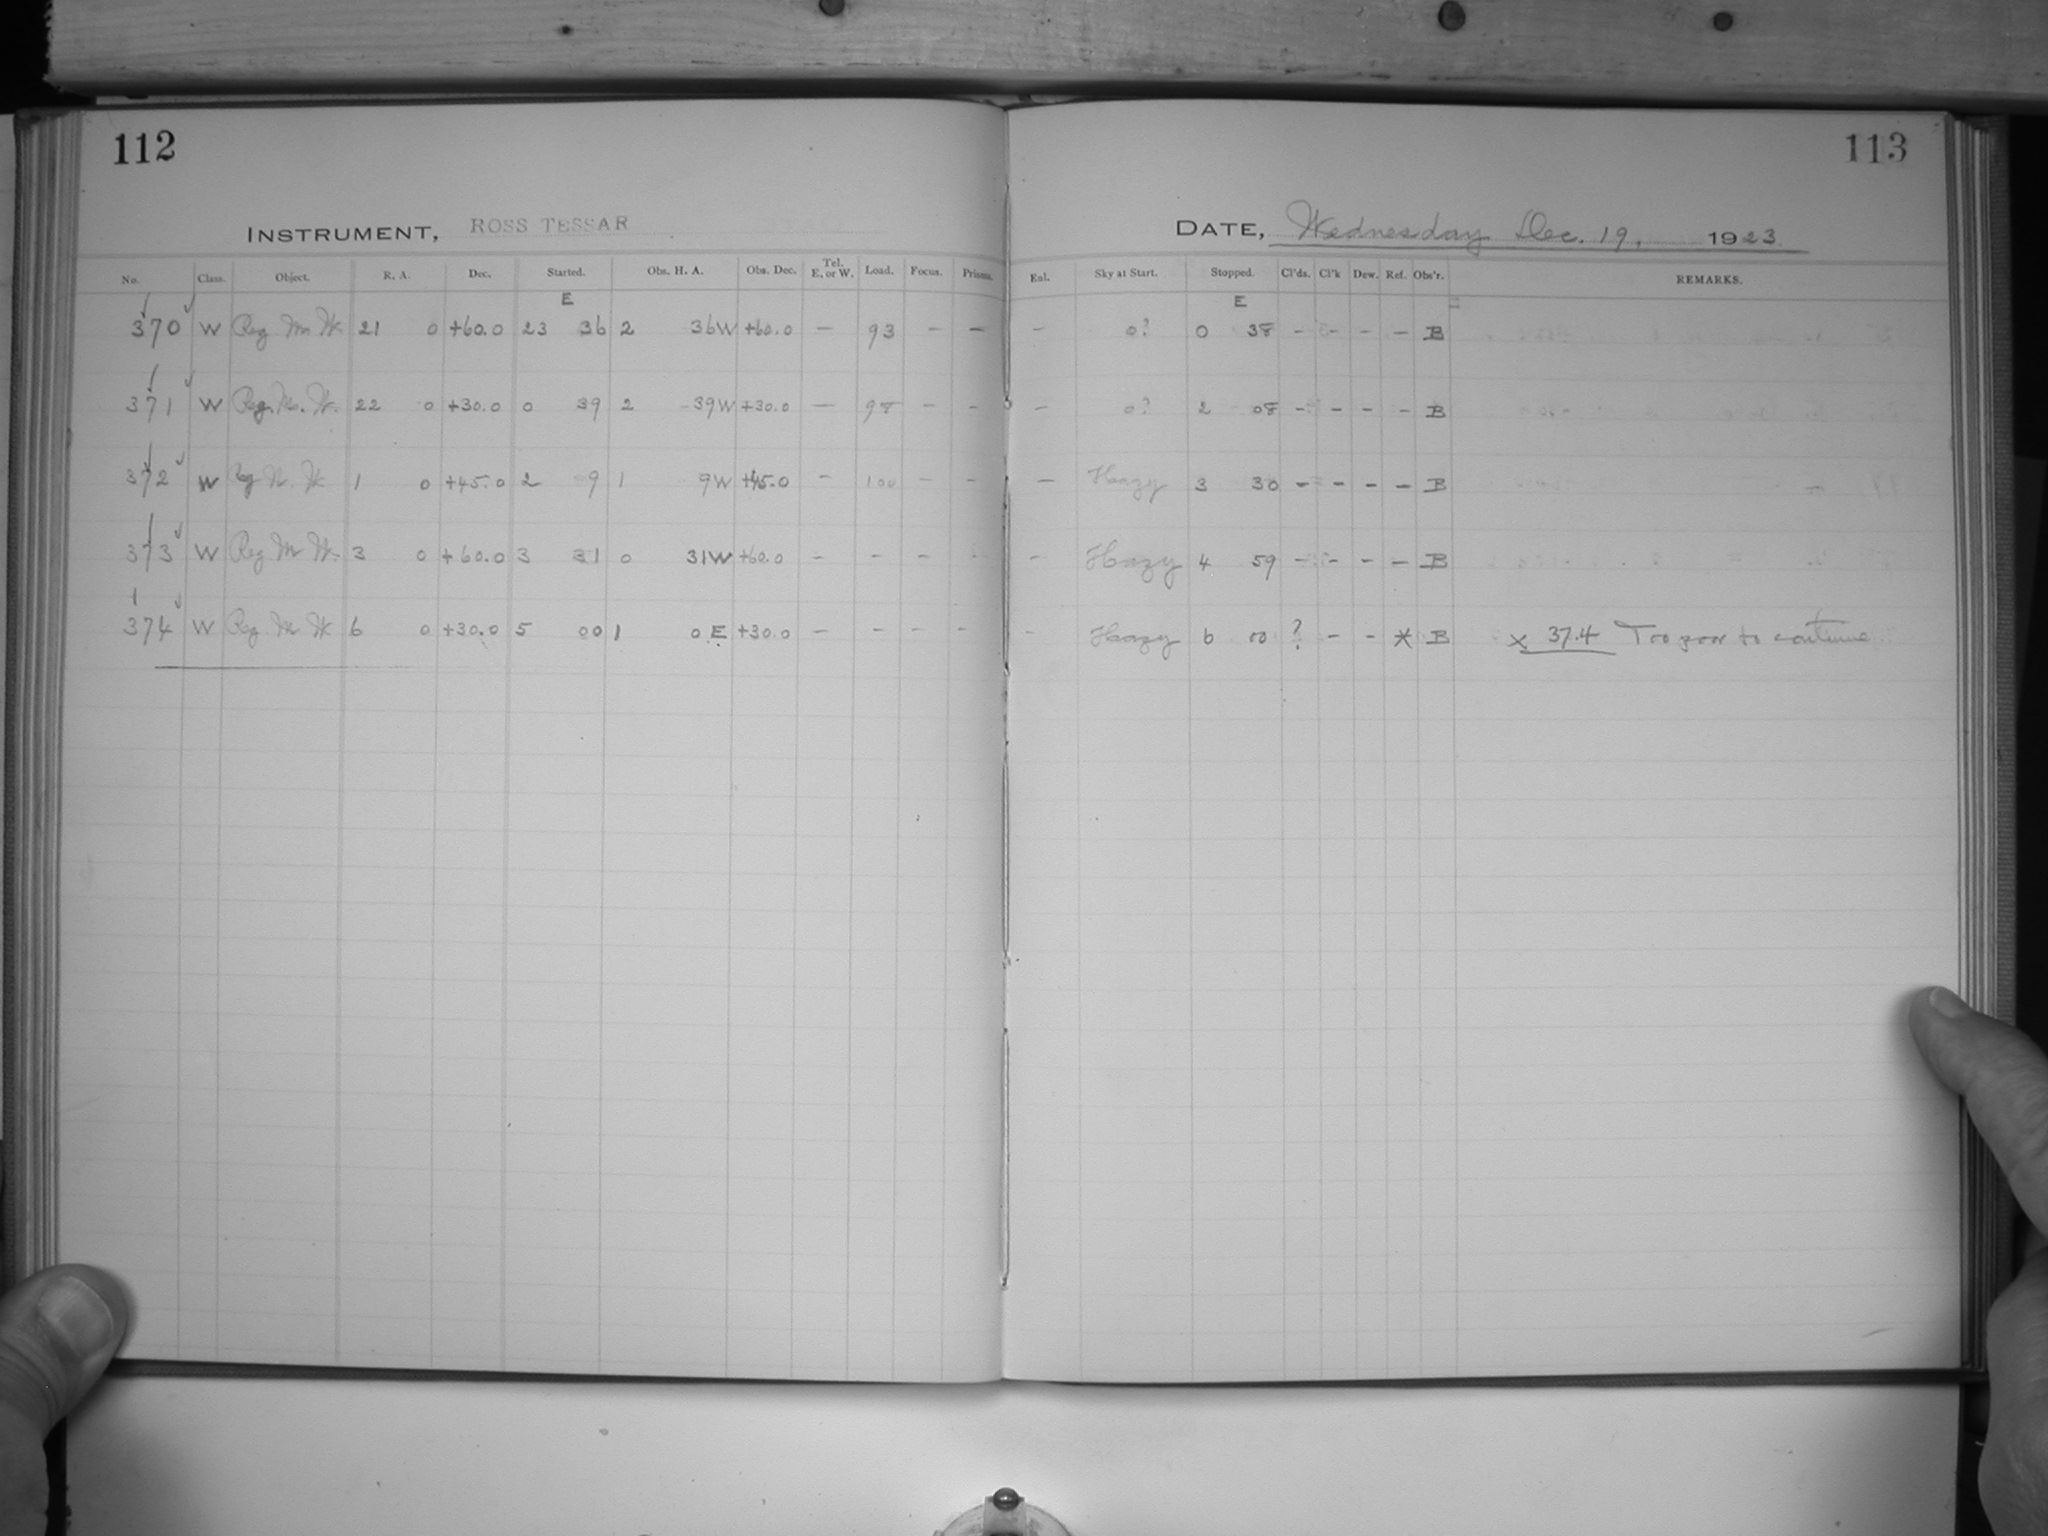 112
113
INSTRUMENT, ROSS TESSAR
DATE, Wednesday Dec. 19, 1923
No. Class. Object. R. A. Dec. Started. Obs. H. A. Obs. Dec. Tel. E. or W. Load. Focus. Prisms. Enl. Sky at Start. Stopped. Cl'ds. Cl'k Dew. Ref. Obs'r. REMARKS.
E E
370 W Reg 21 0 +60.0 23 36 2 36W +60.0 – 93 – – – 0? 0 38 – – – – B
371 W Reg. 22 0 +30.0 0 39 2 39W +30.0 – 98 – – – 0? 2 08 – – – – B
372 W Reg 1 0 +45.0 2 9 1 9W +45.0 – 100 – – – Hazy 3 30 – – – – B
373 W Reg 3 0 +60.0 3 31 0 31W +60.0 – – – – – Hazy 4 59 – – – – B
374 W Reg 6 0 +30.0 5 00 1 0 E +30.0 – – – – – Hazy 6 00 ? – – * B x 374 Too poor to continue